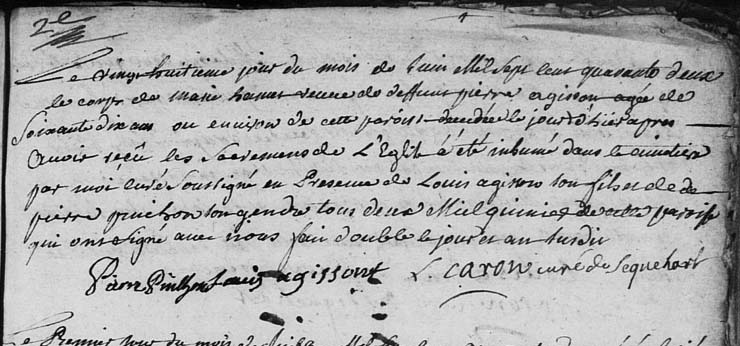 2e
Le vingt huitieme jour du mois de Juin Mil Sept Cent quarante deux
le corps de marie hanat veuve de deffunt pierre agisson agée de
Soixante dix ans ou environ de cette paroisse decedée le jour d'hier apres
avoir reçû les Sacremens de L'Eglise à été inhumé dans le cimetiere
par moi Curé Soussigné en Presence de Louis agisson son fils et de
pierre pinchon son gendre tous deux de cette paroisse
qui ont signé avec nous fait double le jour et an susdit
Piere Pinchon Louis agissont L. CARON curé de Sequehart
Le Premier jour du mois de